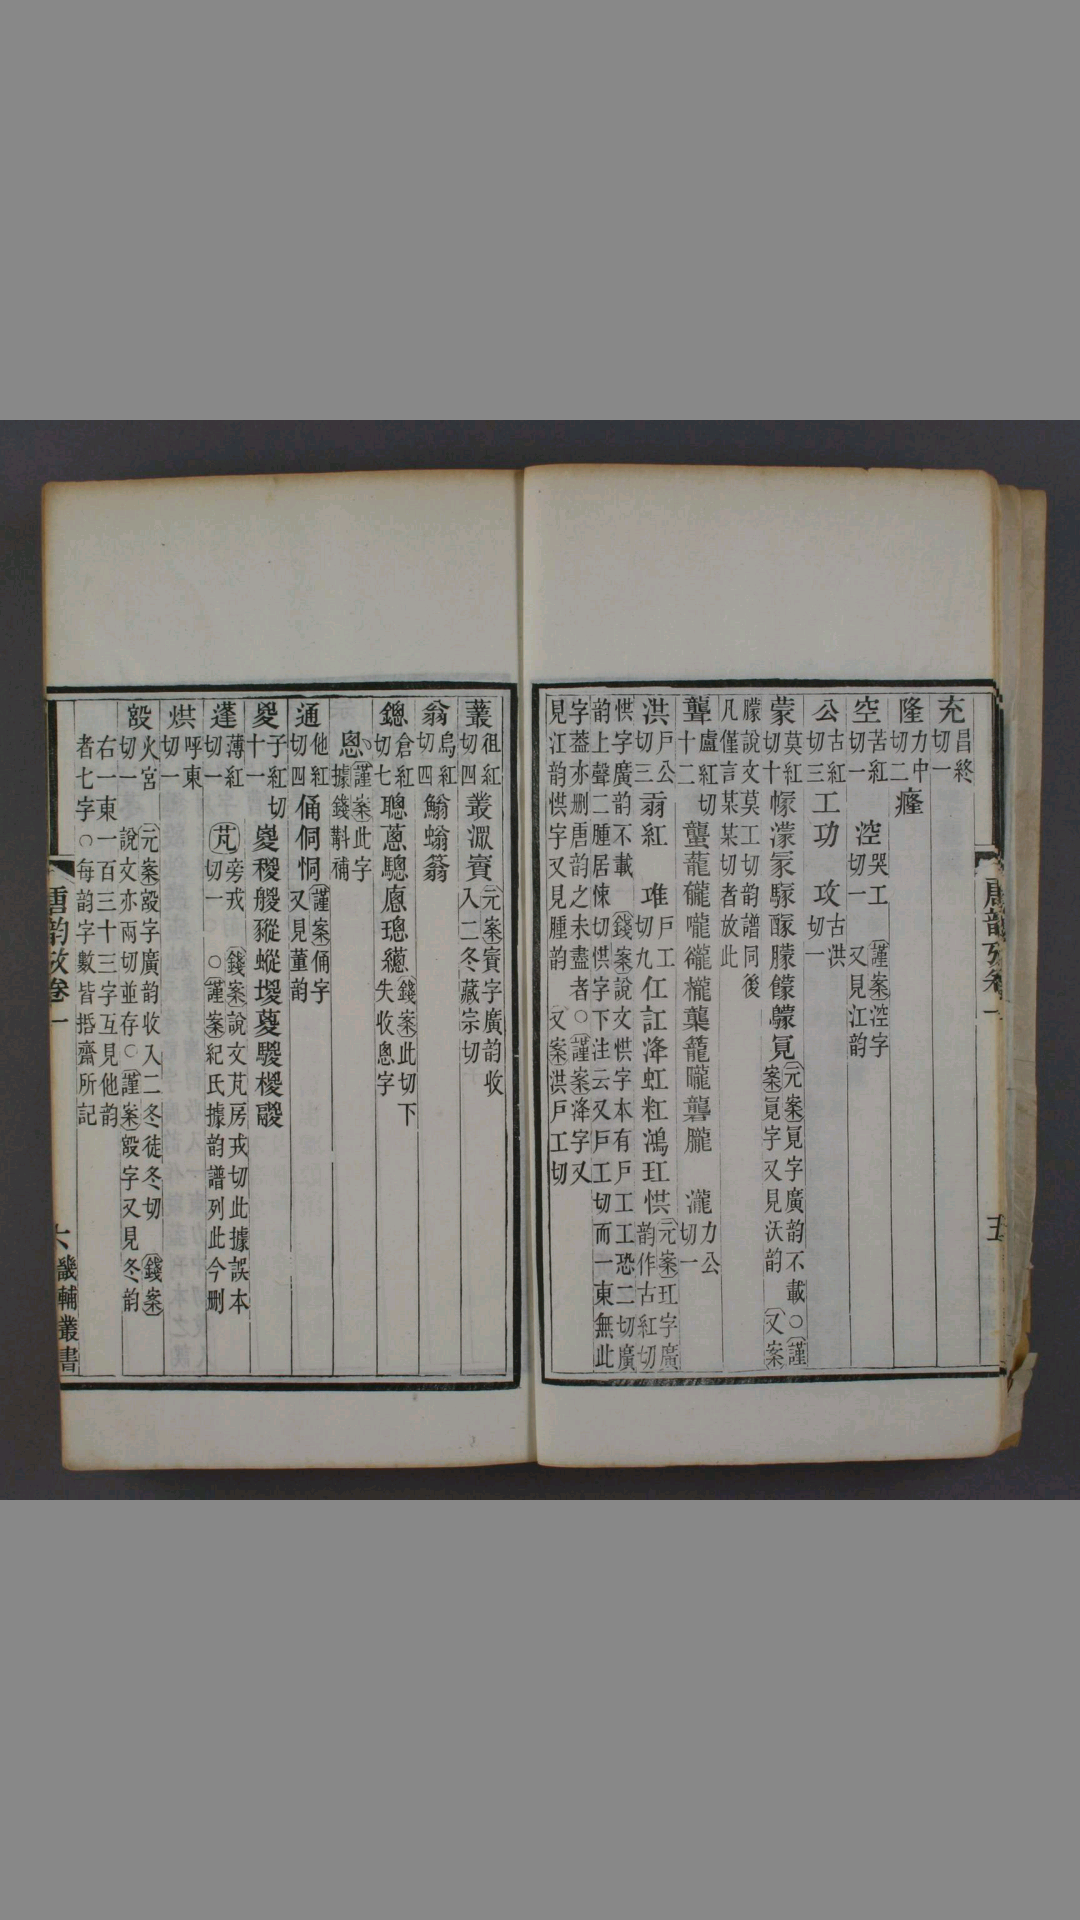 充昌終切一
隆力中切二癃
空苦紅切一 涳哭工切一謹案涳字又見江韵
公古紅切三工功 攻古洪切一
蒙莫紅切十幪濛冡騣 朦饛 元案 字廣韵不載○謹案 字又見沃韵 又案
朦說文莫工切韵譜同後凡僅言某某切者放此
聾盧紅切十二蠪蘢 嚨 櫳 籠曨礱朧 瀧力公切一
洪戶公切三 紅 琟戶工切九仜訌洚虹粠鴻玒㤨元案玒字廣韵作古紅切
㤨字廣韵不載 錢案說文㤨字本有戶工工恐二切廣韵上聲二腫居悚切㤨字下注云又戶工切而一東無此
字葢亦删唐韵之未盡者○謹案洚字又見江韵㤨字又見腫韵 又案洪戶工切
唐韵攷卷一
五
叢徂紅切四叢潀賨元案賨字廣韵收入二冬藏宗切
翁烏紅切四鰯螉蓊
鏓倉紅切七聰蔥驄廖璁 錢案此切下失收悤字
悤謹案此字據錢斠補
通他紅切四俑侗恫謹案俑字又見董韵
㚇子紅切十一嵏稯艐豵蝬堫葼騣椶
蓬薄紅切一 芃旁戎切一 ○錢案說文芃房戎切此據誤本 謹案紀氏據韵譜列此今删
烘呼東切一
㲅火宮切一 元案㲅字廣韵收入二冬徒冬切 錢案說文亦兩切並存○謹案㲅字又見冬韵
右一東一百三十三字互見他韵者七字○每韵字數皆㧗齊所記
唐韵攷卷一
六
畿輔叢書